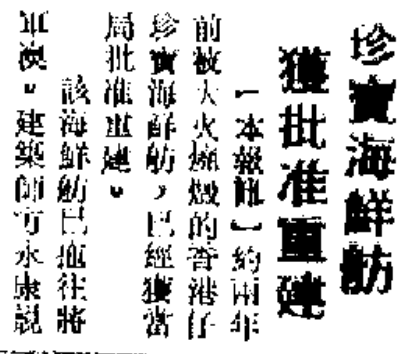 珍寶海鮮舫
獲批准重建
【本報訊】約兩年
前被大火燒燬的香港仔
珍寶海鮮舫，已經獲當
局批准重建。
該海鮮舫已拖往將
軍澳。建築師方永康說